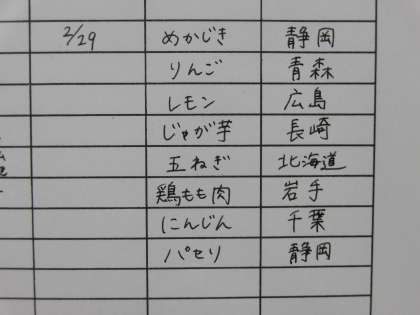 2/29 めかじき 静岡
りんご 青森
レモン 広島
じゃが芋 長崎
玉ねぎ 北海道
鶏もも肉 岩手
にんじん 千葉
パセリ 静岡